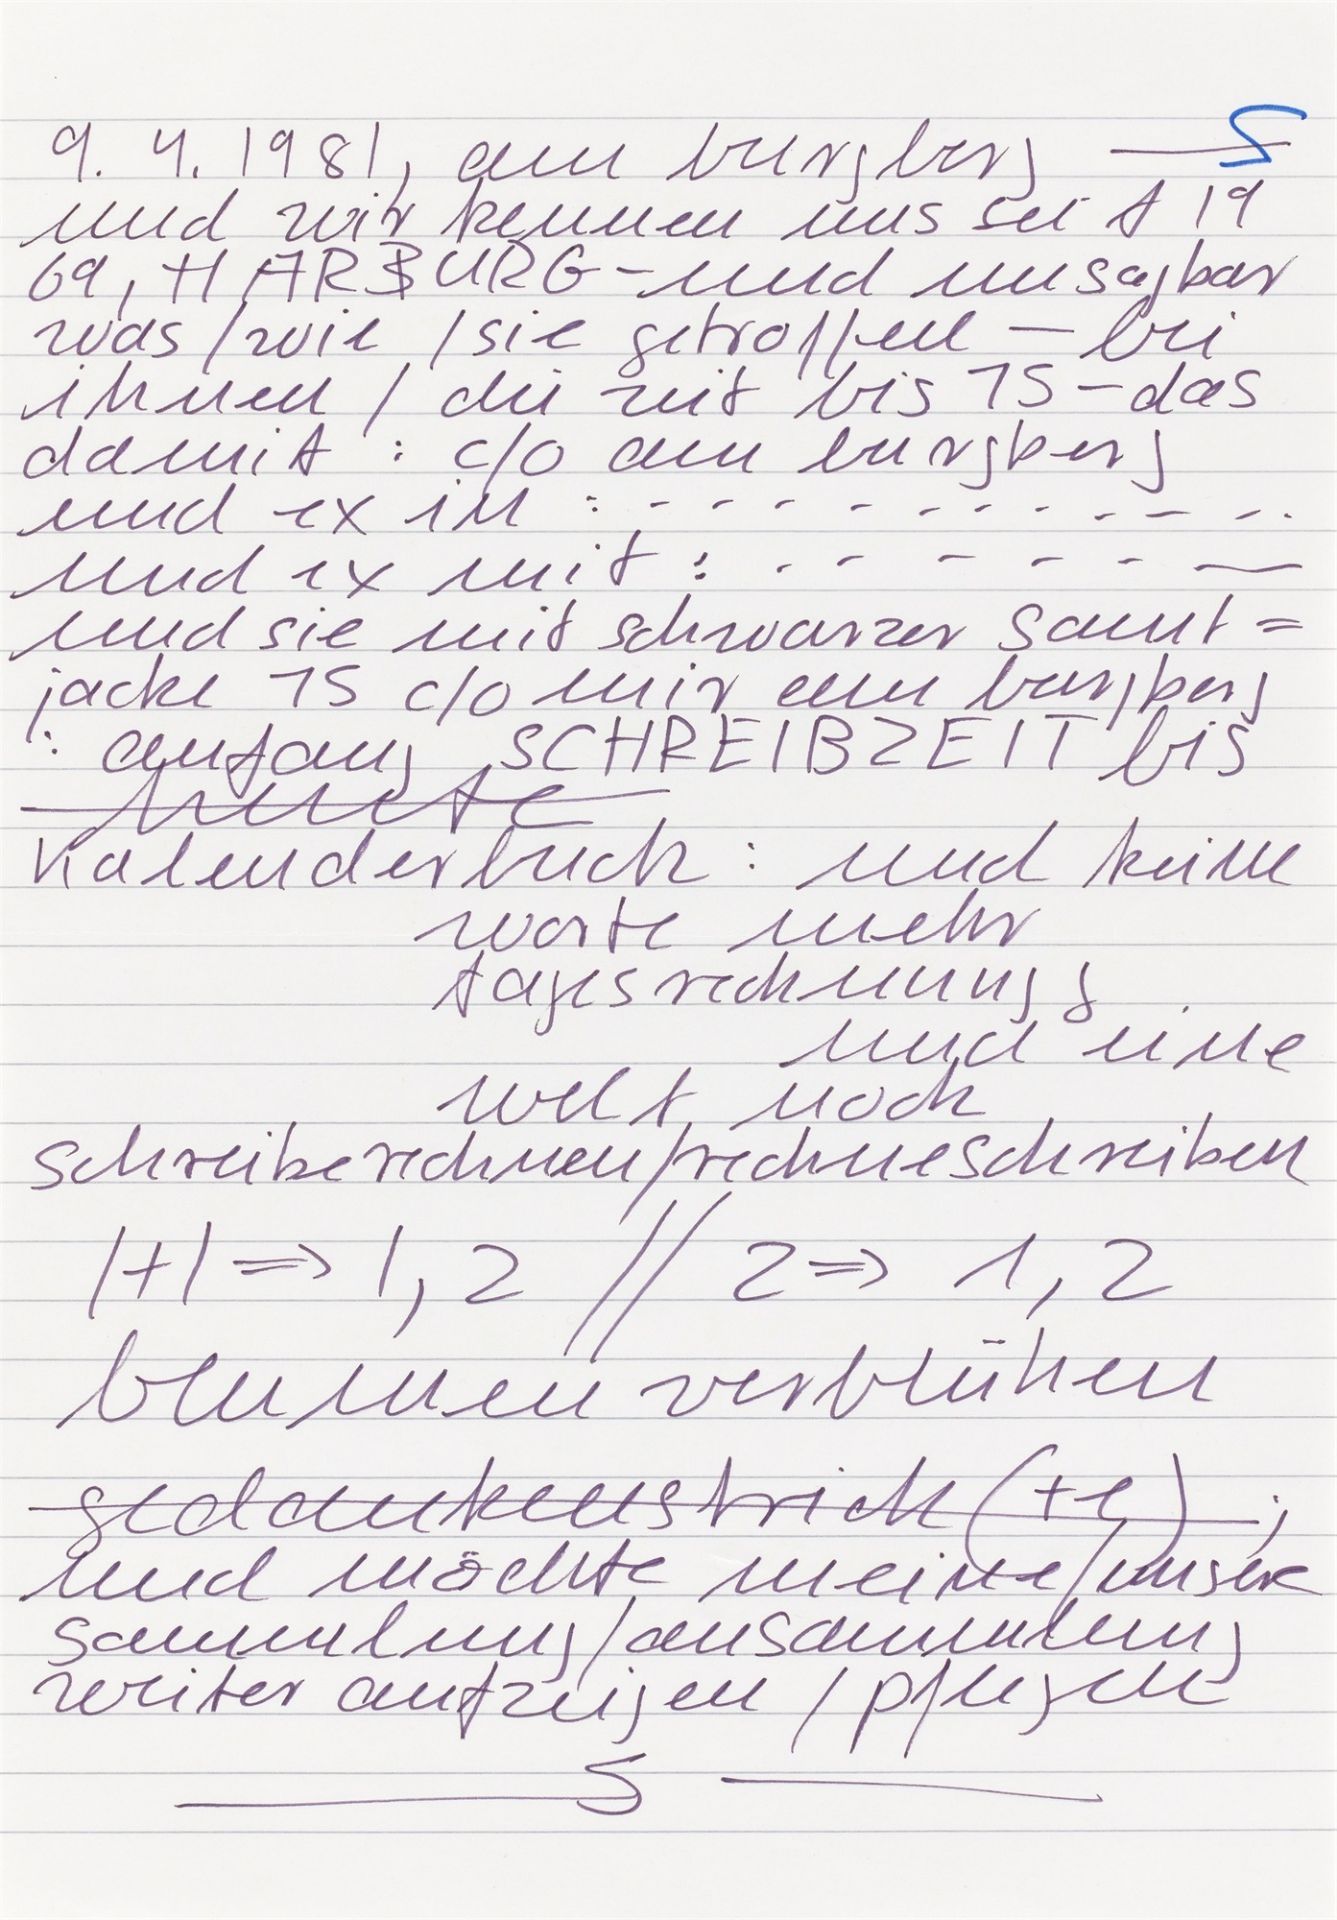 9. 4. 1981, am burgberg — 5
und wir kennen uns seit 19
69, HARBURG - und unsagbar
was / wie / sie getroffen — bei
ihnen / die zeit bis 75 - das
damit : c/o am burgberg
und ex in : - - - - - - - - - - -
und ex mit : - - - - - —
und sie mit schwarzer samt =
jacke 75 c/o mir am burgberg
: anfang SCHREIBZEIT bis
heute
Kalenderbuch : und keine
worte mehr
tagesrechnung
und eine
welt noch
schreiberechnen/rechneschreiben
1+1 => 1, 2 // 2 => 1, 2
blumen verblühen
gedankenstrich (+e) ;
und möchte meine/unsere
sammlung/ansammlung
weiter aufzeigen / pflegen
— 5 —